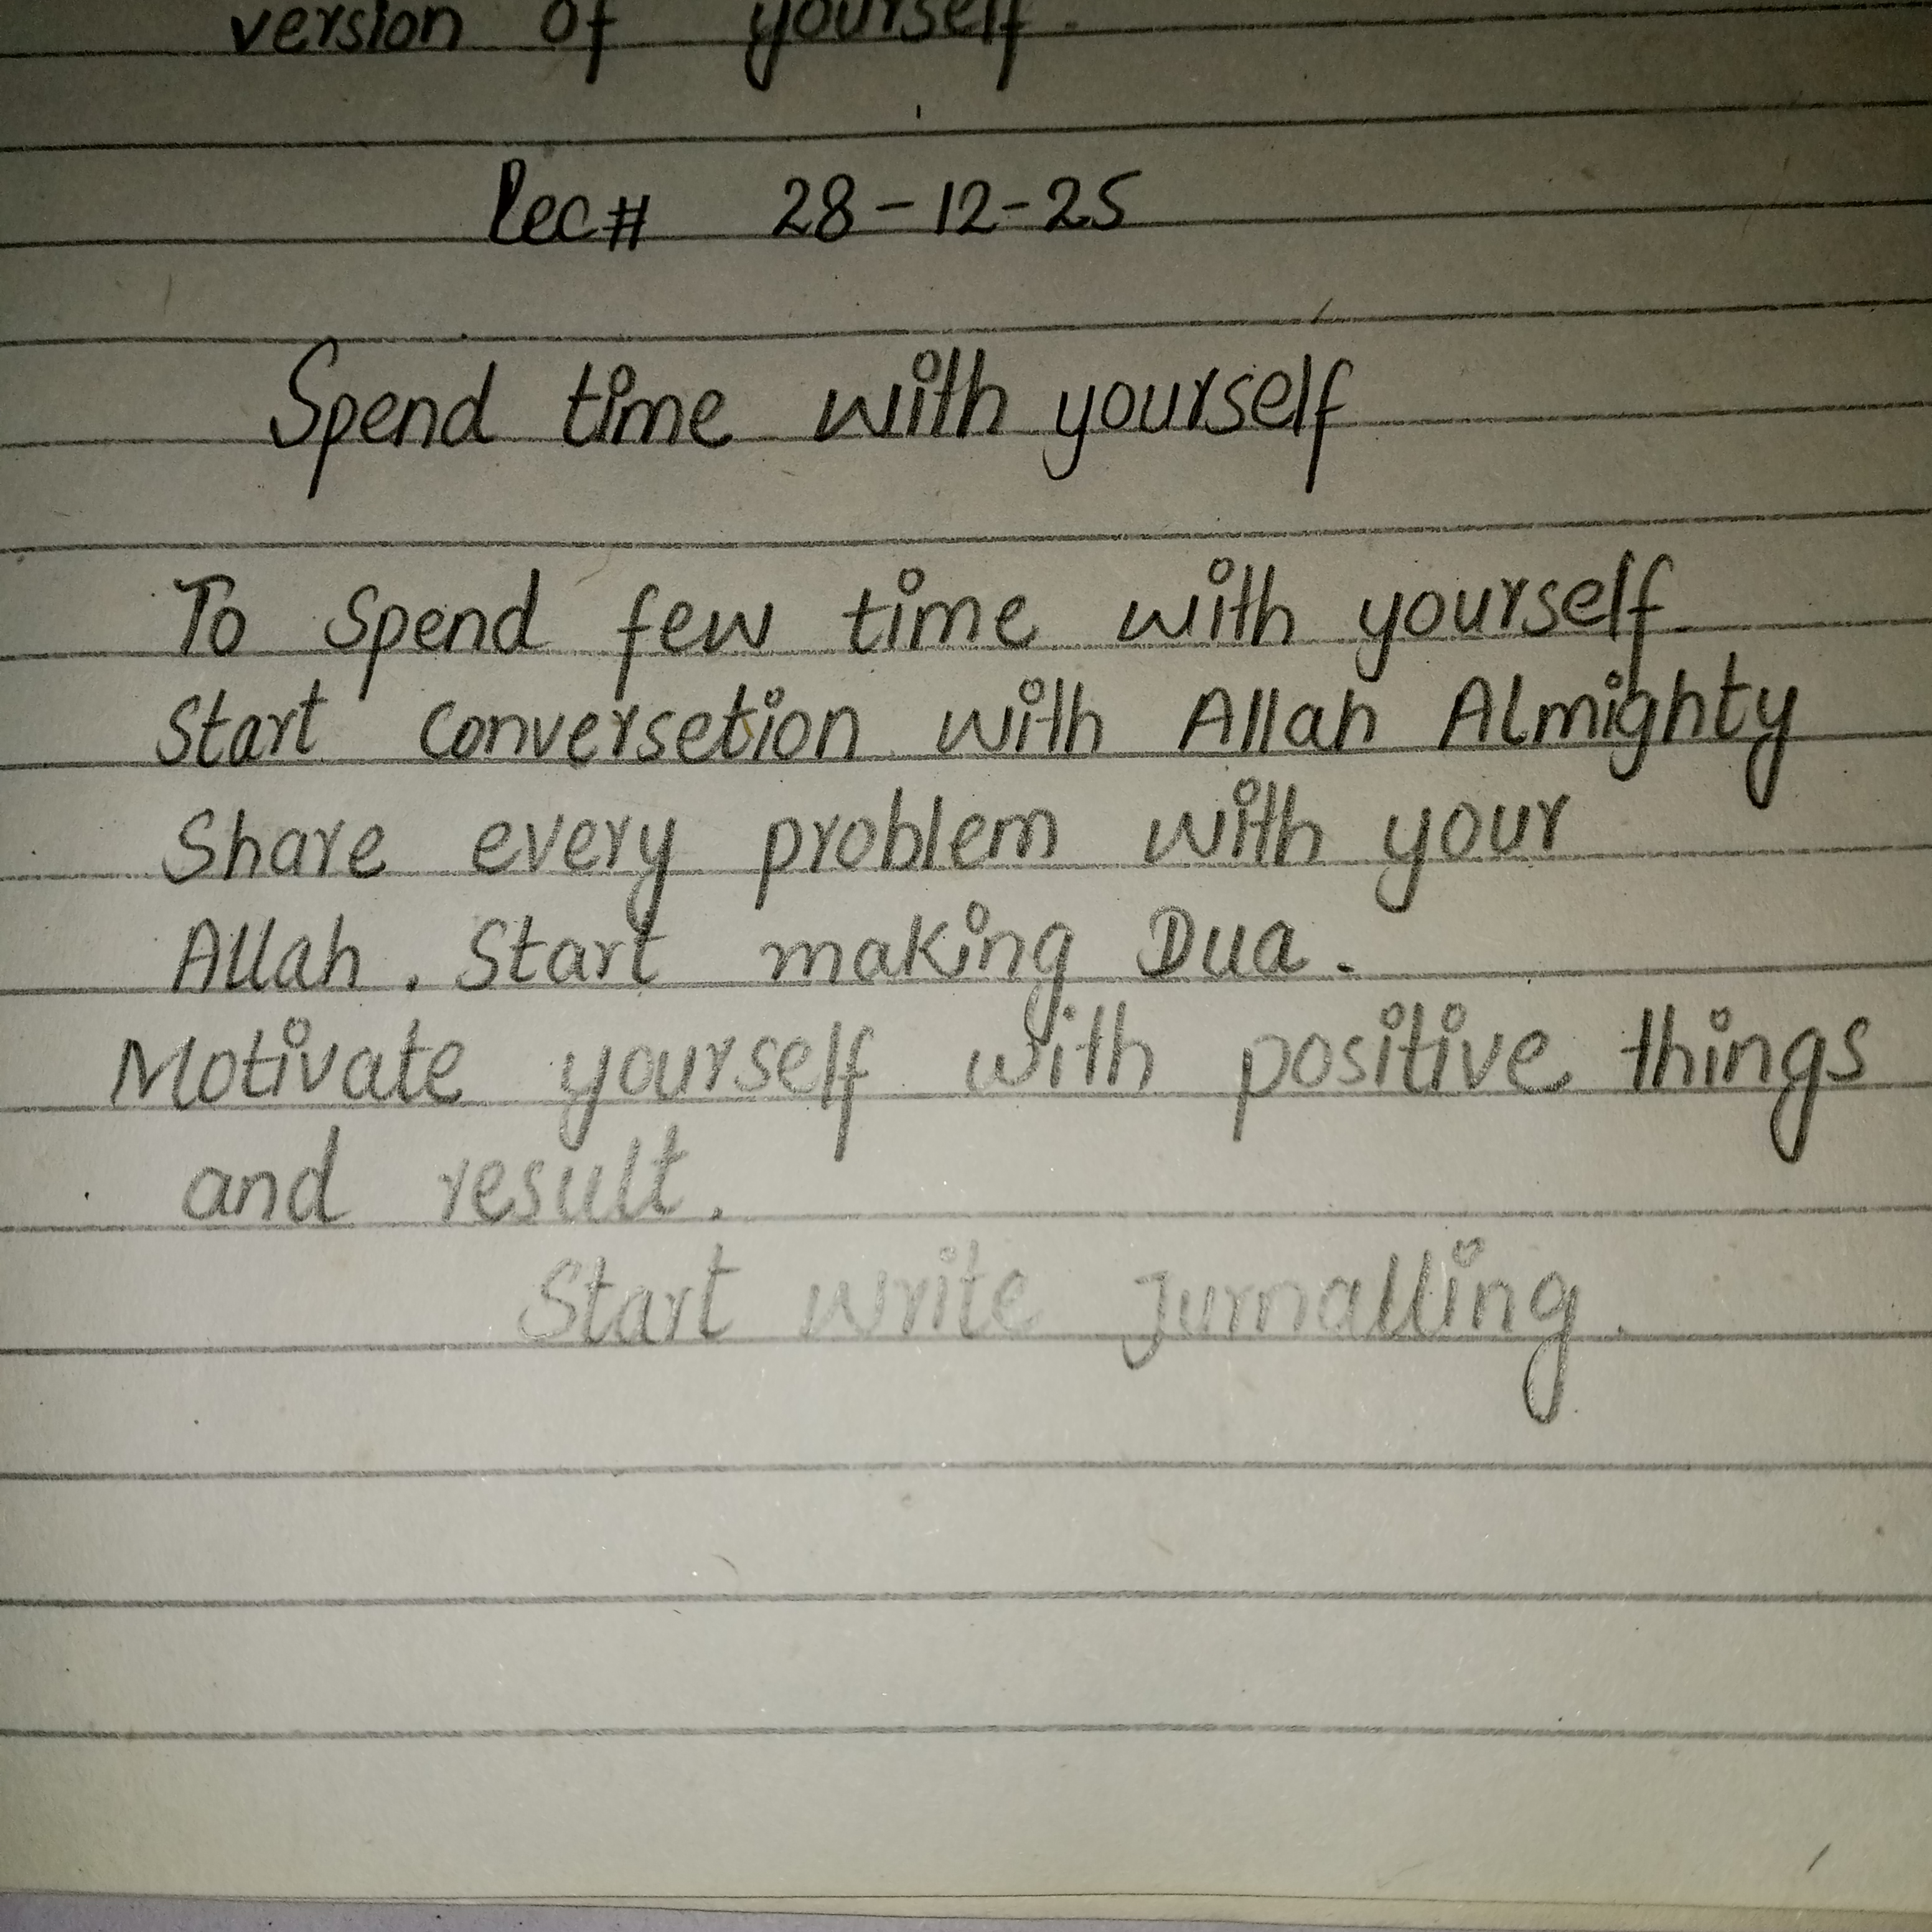 version of yourself.
Lec# 28-12-25
Spend time with yourself
To Spend few time with yourself
Start conversetion with Allah Almighty
Share every problem with your
Allah. Start making Dua.
Motivate yourself with positive things
and result.
Start write Jurnalling.